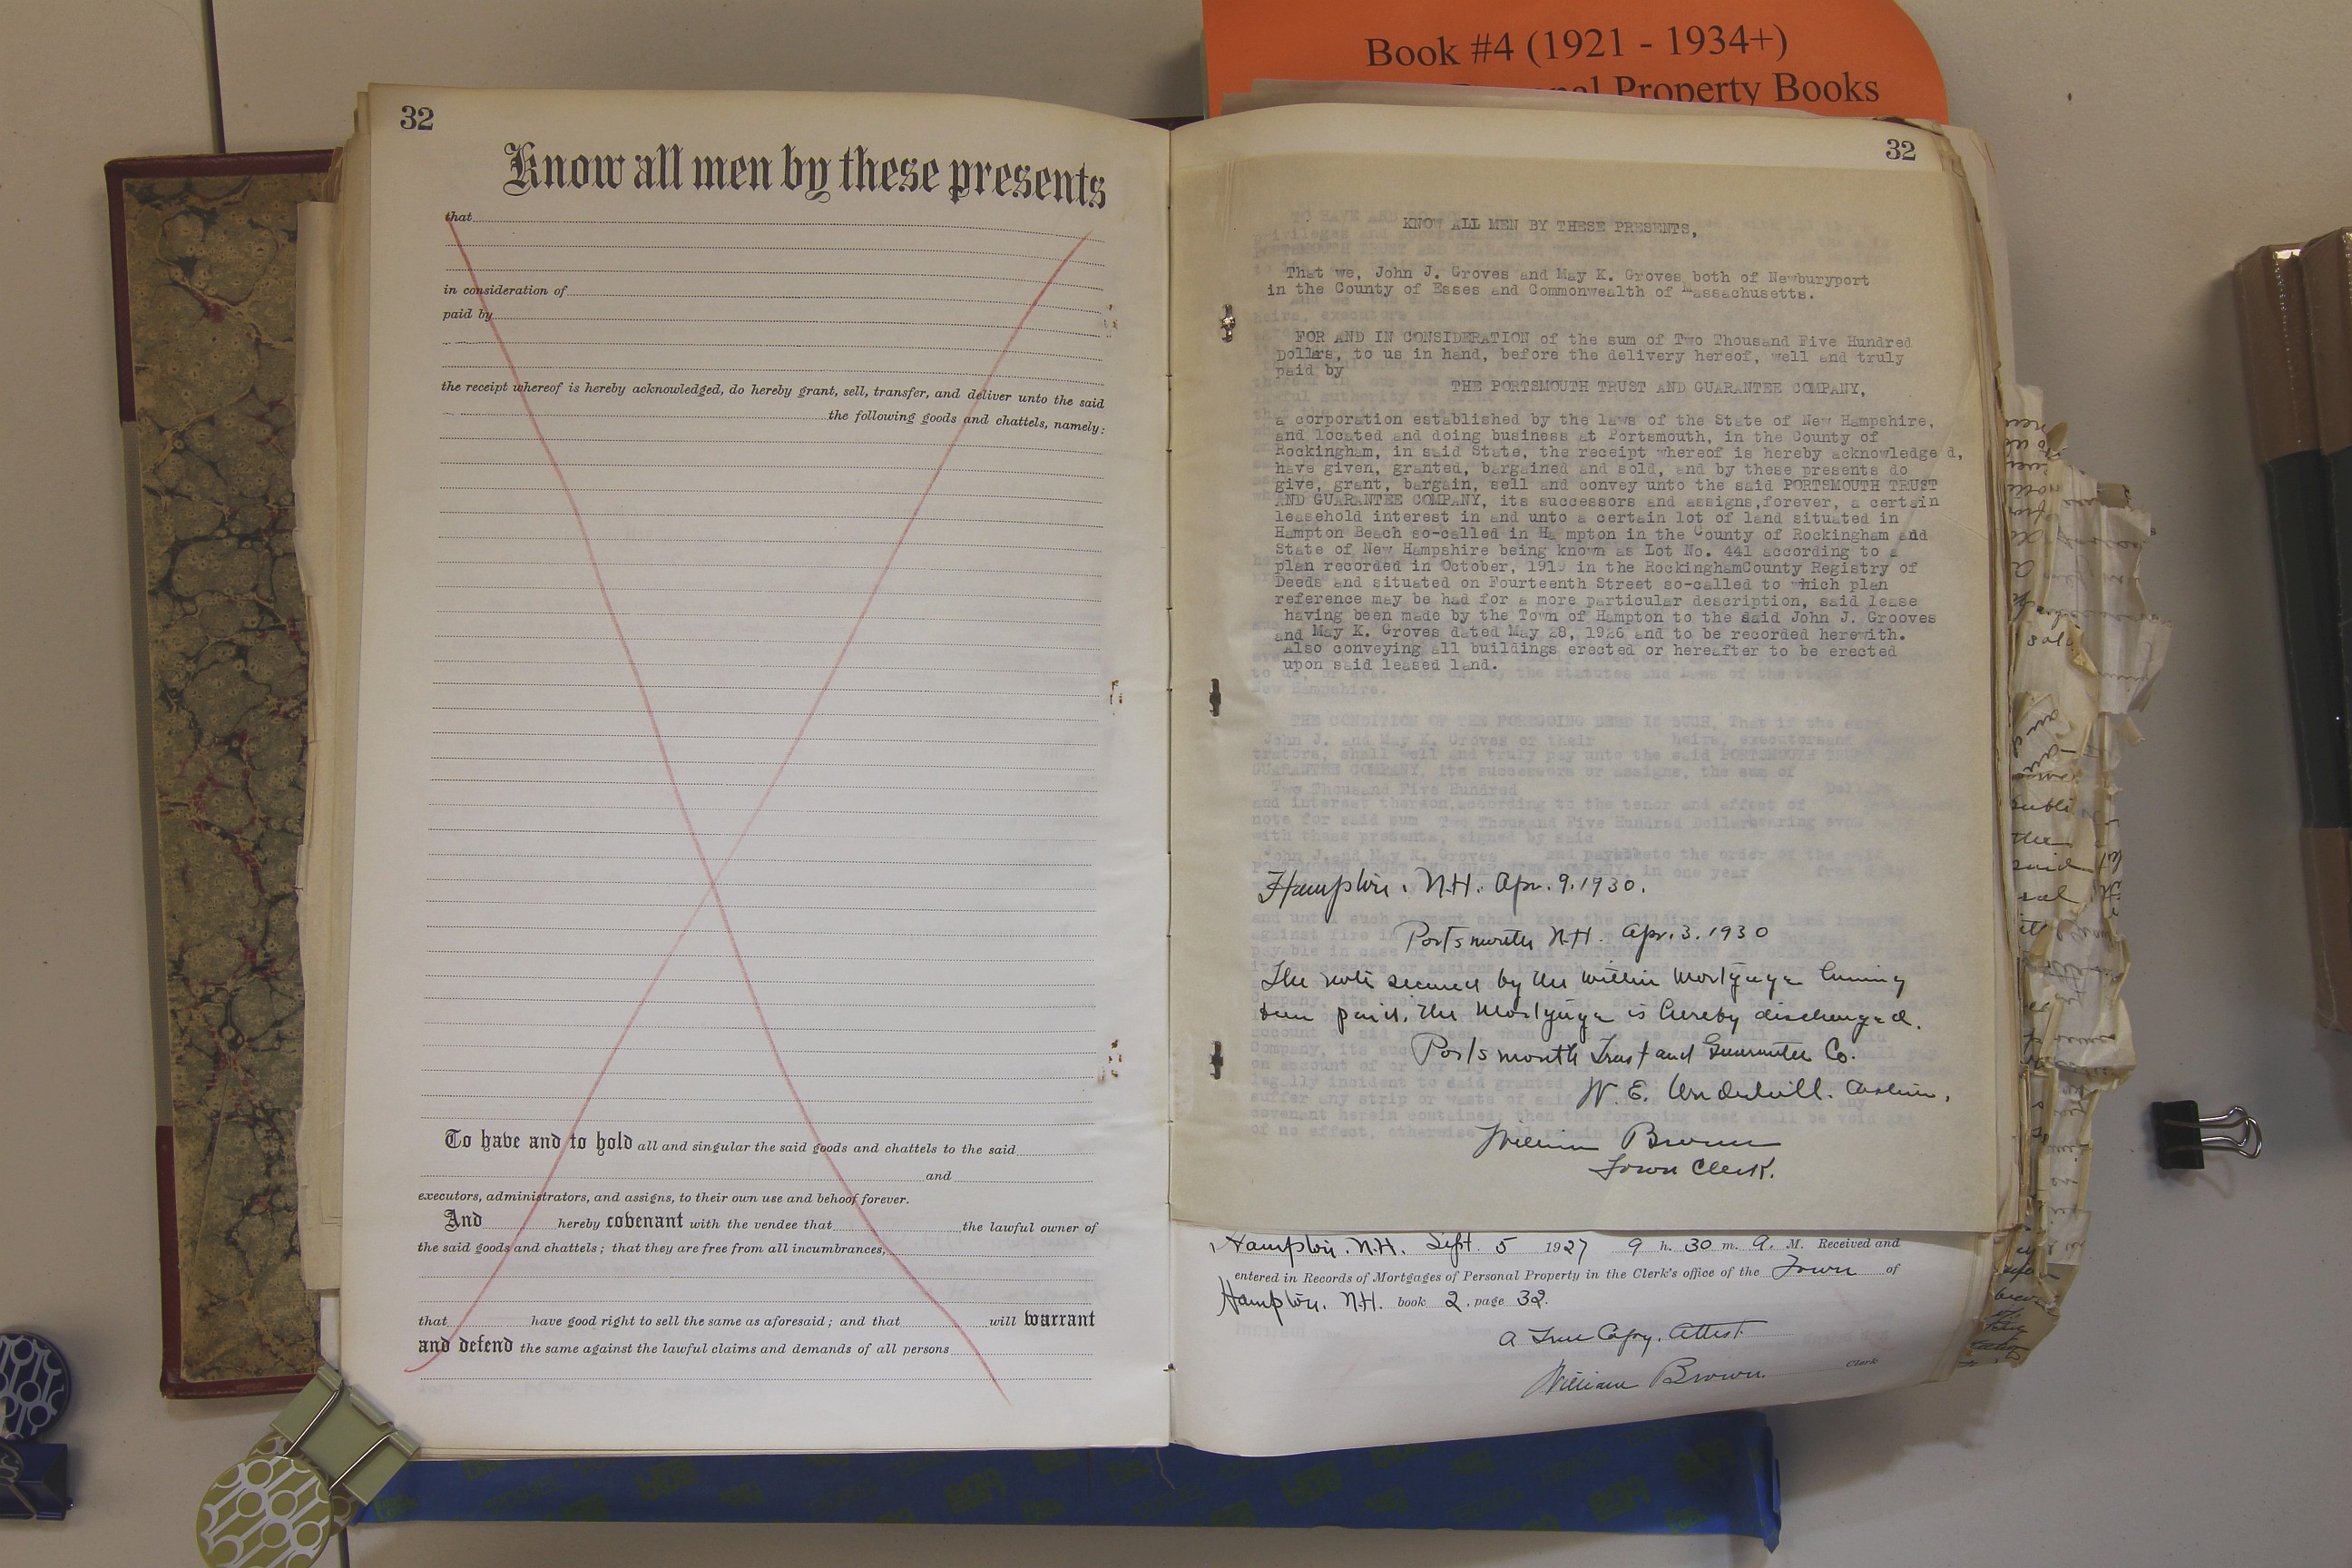 Book #4 (1921 - 1934+)
Property Books
32
Know all men by these presents
that
in consideration of
paid by
the receipt whereof is hereby acknowledged, do hereby grant, sell, transfer, and deliver unto the said
the following goods and chattels, namely:
To have and to hold all and singular the said goods and chattels to the said
and
executors, administrators, and assigns, to their own use and behoof forever.
And hereby covenant with the vendee that the lawful owner of
the said goods and chattels; that they are free from all incumbrances,
that have good right to sell the same as aforesaid; and that will warrant
and defend the same against the lawful claims and demands of all persons
32
KNOW ALL MEN BY THESE PRESENTS,
That we, John J. Groves and May K. Groves both of Newburyport
in the County of Esses and Commonwealth of Massachusetts.
FOR AND IN CONSIDERATION of the sum of Two Thousand Five Hundred
Dollrs, to us in hand, before the delivery hereof, well and truly
paid by
THE PORTSMOUTH TRUST AND GUARANTEE COMPANY,
a corporation established by the laws of the State of New Hampshire,
and located and doing business at Portsmouth, in the County of
Rockingham, in said State, the receipt whereof is hereby acknowledge d,
have given, granted, bargained and sold, and by these presents do
give, grant, bargain, sell and convey unto the said PORTSMOUTH TRUST
AND GUARANTEE COMPANY, its successors and assigns,forever, a certain
leasehold interest in and unto a certain lot of land situated in
Hampton Beach so-called in Ha mpton in the County of Rockingham and
State of New Hampshire being known as Lot No. 441 according to a
plan recorded in October, 1919 in the RockinghamCounty Registry of
Deeds and situated on Fourteenth Street so-called to which plan
reference may be had for a more particular description, said lease
having been made by the Town of Hampton to the said John J. Grooves
and May K. Groves dated May 28, 1926 and to be recorded herewith.
Also conveying all buildings erected or hereafter to be erected
upon said leased land.
Hampton, N.H. Apr. 9. 1930.
Portsmouth N.H. Apr. 3. 1930
The note secured by the within Mortgage having
been paid, the Mortgage is hereby discharged.
Portsmouth Trust and Guarantee Co.
W. E. Underhill. Cashier.
William Brown
Town Clerk.
Hampton. N.H. Sept. 5 1927 9 h. 30 m. A. M. Received and
entered in Records of Mortgages of Personal Property in the Clerk's office of the Town of
Hampton. N.H. book 2, page 32.
A True Copy, Attest
William Brown. Clerk